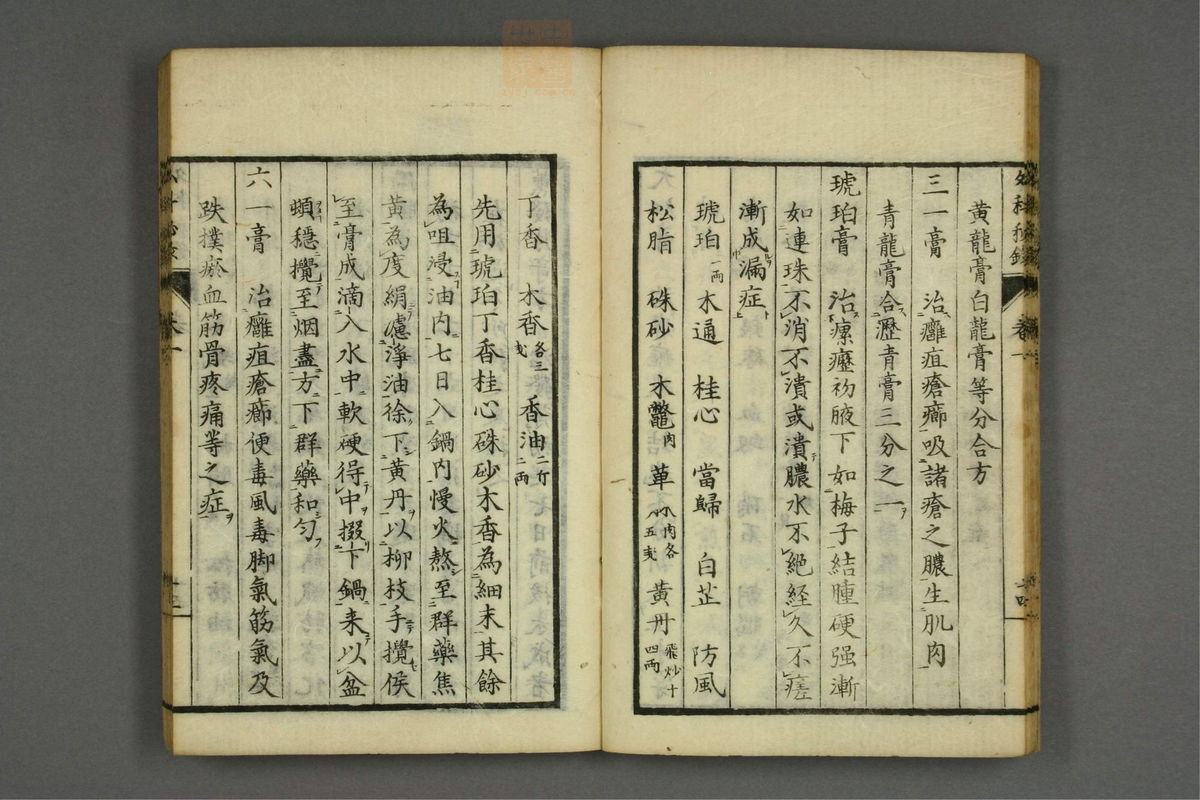 黄龍膏白龍膏等分合方
三一膏　治癰疽瘡癤吸諸瘡之膿生肌肉
青龍膏合瀝青膏三分之一
琥珀膏　治瘰癧初腋下如梅子結腫硬强漸
如連珠不消不潰或潰膿水不絶経久不瘥
漸成漏症
琥珀一兩　木通　桂心　當歸　白芷　防風
松脂　硃砂　木鱉肉　萆 肉各五戔　黄丹飛炒十四兩
丁香　木香各三戔　香油二斤二兩
先用琥珀丁香桂心硃砂木香為細末其餘
為咀浸油内七日入鍋内慢火熬至群藥焦
黄為度絹濾淨油徐下黄丹以柳枝手攪候
至膏成滴入水中軟硬得中掇下鍋来以盆
頓穏攪至烟盡方下群藥和匀
六一膏　治癰疽瘡癤便毒風毒脚氣筋氣及
跌撲瘀血筋骨疼痛等之症